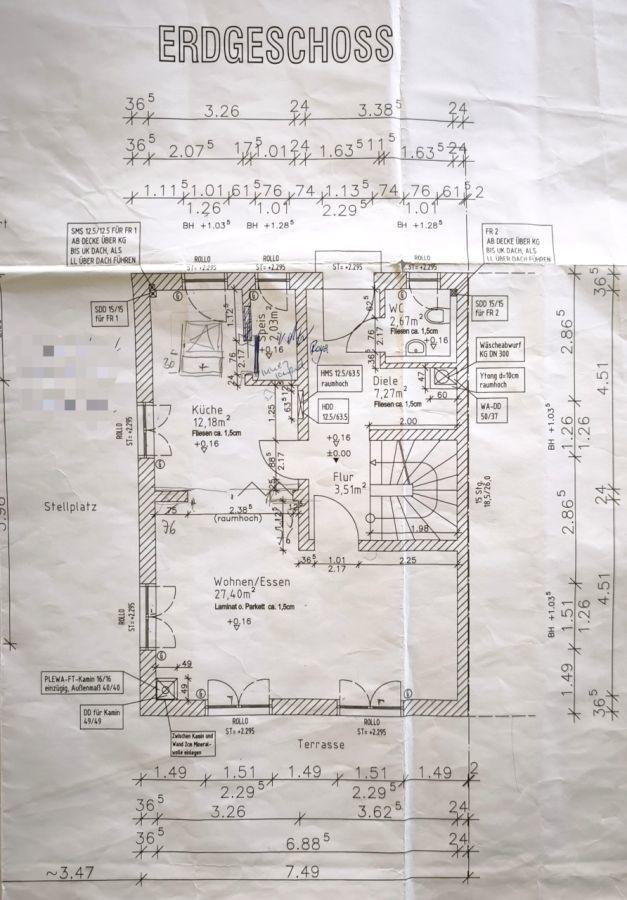 ERDGESCHOSS
36⁵ 3.26 24 3.38⁵ 24
36⁵ 2.07⁵ 17⁵ 1.01 24 1.63⁵ 11⁵ 1.63⁵ 24
1.11⁵ 1.01 61⁵ 76 74 1.13⁵ 74 76 61⁵ 2
1.26 1.01 2.29⁵ 1.01
BH +1.03⁵ BH +1.28⁵ BH +1.28⁵
SMS 12.5/12.5 FÜR FR 1
AB DECKE ÜBER KG
BIS UK DACH, ALS
LL ÜBER DACH FÜHREN
FR 2
AB DECKE ÜBER KG
BIS UK DACH, ALS
LL ÜBER DACH FÜHREN
ROLLO
ST= +2.295
ROLLO
ST= +2.295
ST= +2.295
ROLLO
ST= +2.295
SDD 15/15
FÜR FR 1
SDD 15/15
FÜR FR 2
Speis
2,03m²
+0,16
WC
2,67m²
Fliesen ca. 1,5cm
+0,16
Wäscheabwurf
KG DN 300
Ytong d=10cm
raumhoch
WA-DD
50/37
HMS 12.5/63.5
raumhoch
HDD
12.5/63.5
Diele
7,27m²
Fliesen ca. 1,5cm
47
60
2.00
Küche
12,18m²
Fliesen ca. 1,5cm
+0,16
1.12⁵
76
2.17
24
1.25
63⁵
62⁵
76
2.17
36⁵
88⁵
2.17
+0,16
±0.00
Flur
3,51m²
15 Stg.
18,5/26,0
1.98
ROLLO
ST= +2.295
Stellplatz
75
2.38⁵
(raumhoch)
76
36⁵ 1.01 2.25
2.17
Wohnen/Essen
27,40m²
Laminat o. Parkett ca. 1,5cm
+0,16
ROLLO
ST= +2.295
PLEWA-FT-Kamin 16/16
einzügig, Außenmaß 40/40
DD für Kamin
49/49
49
49
Zwischen Kamin und
Wand 2cm Mineral-
wolle einlegen
ROLLO
ST= +2.295
ROLLO
ST= +2.295
Terrasse
36⁵
2.86⁵
4.51
BH +1.03⁵
1.26
1.26
24
2.86⁵
4.51
BH +1.03⁵
1.51
1.26
1.49
36⁵
1.49 1.51 1.49 1.51 1.49 2
2.29⁵ 2.29⁵
36⁵ 3.26 3.62⁵ 24
36⁵ 6.88⁵ 24
~3.47 7.49